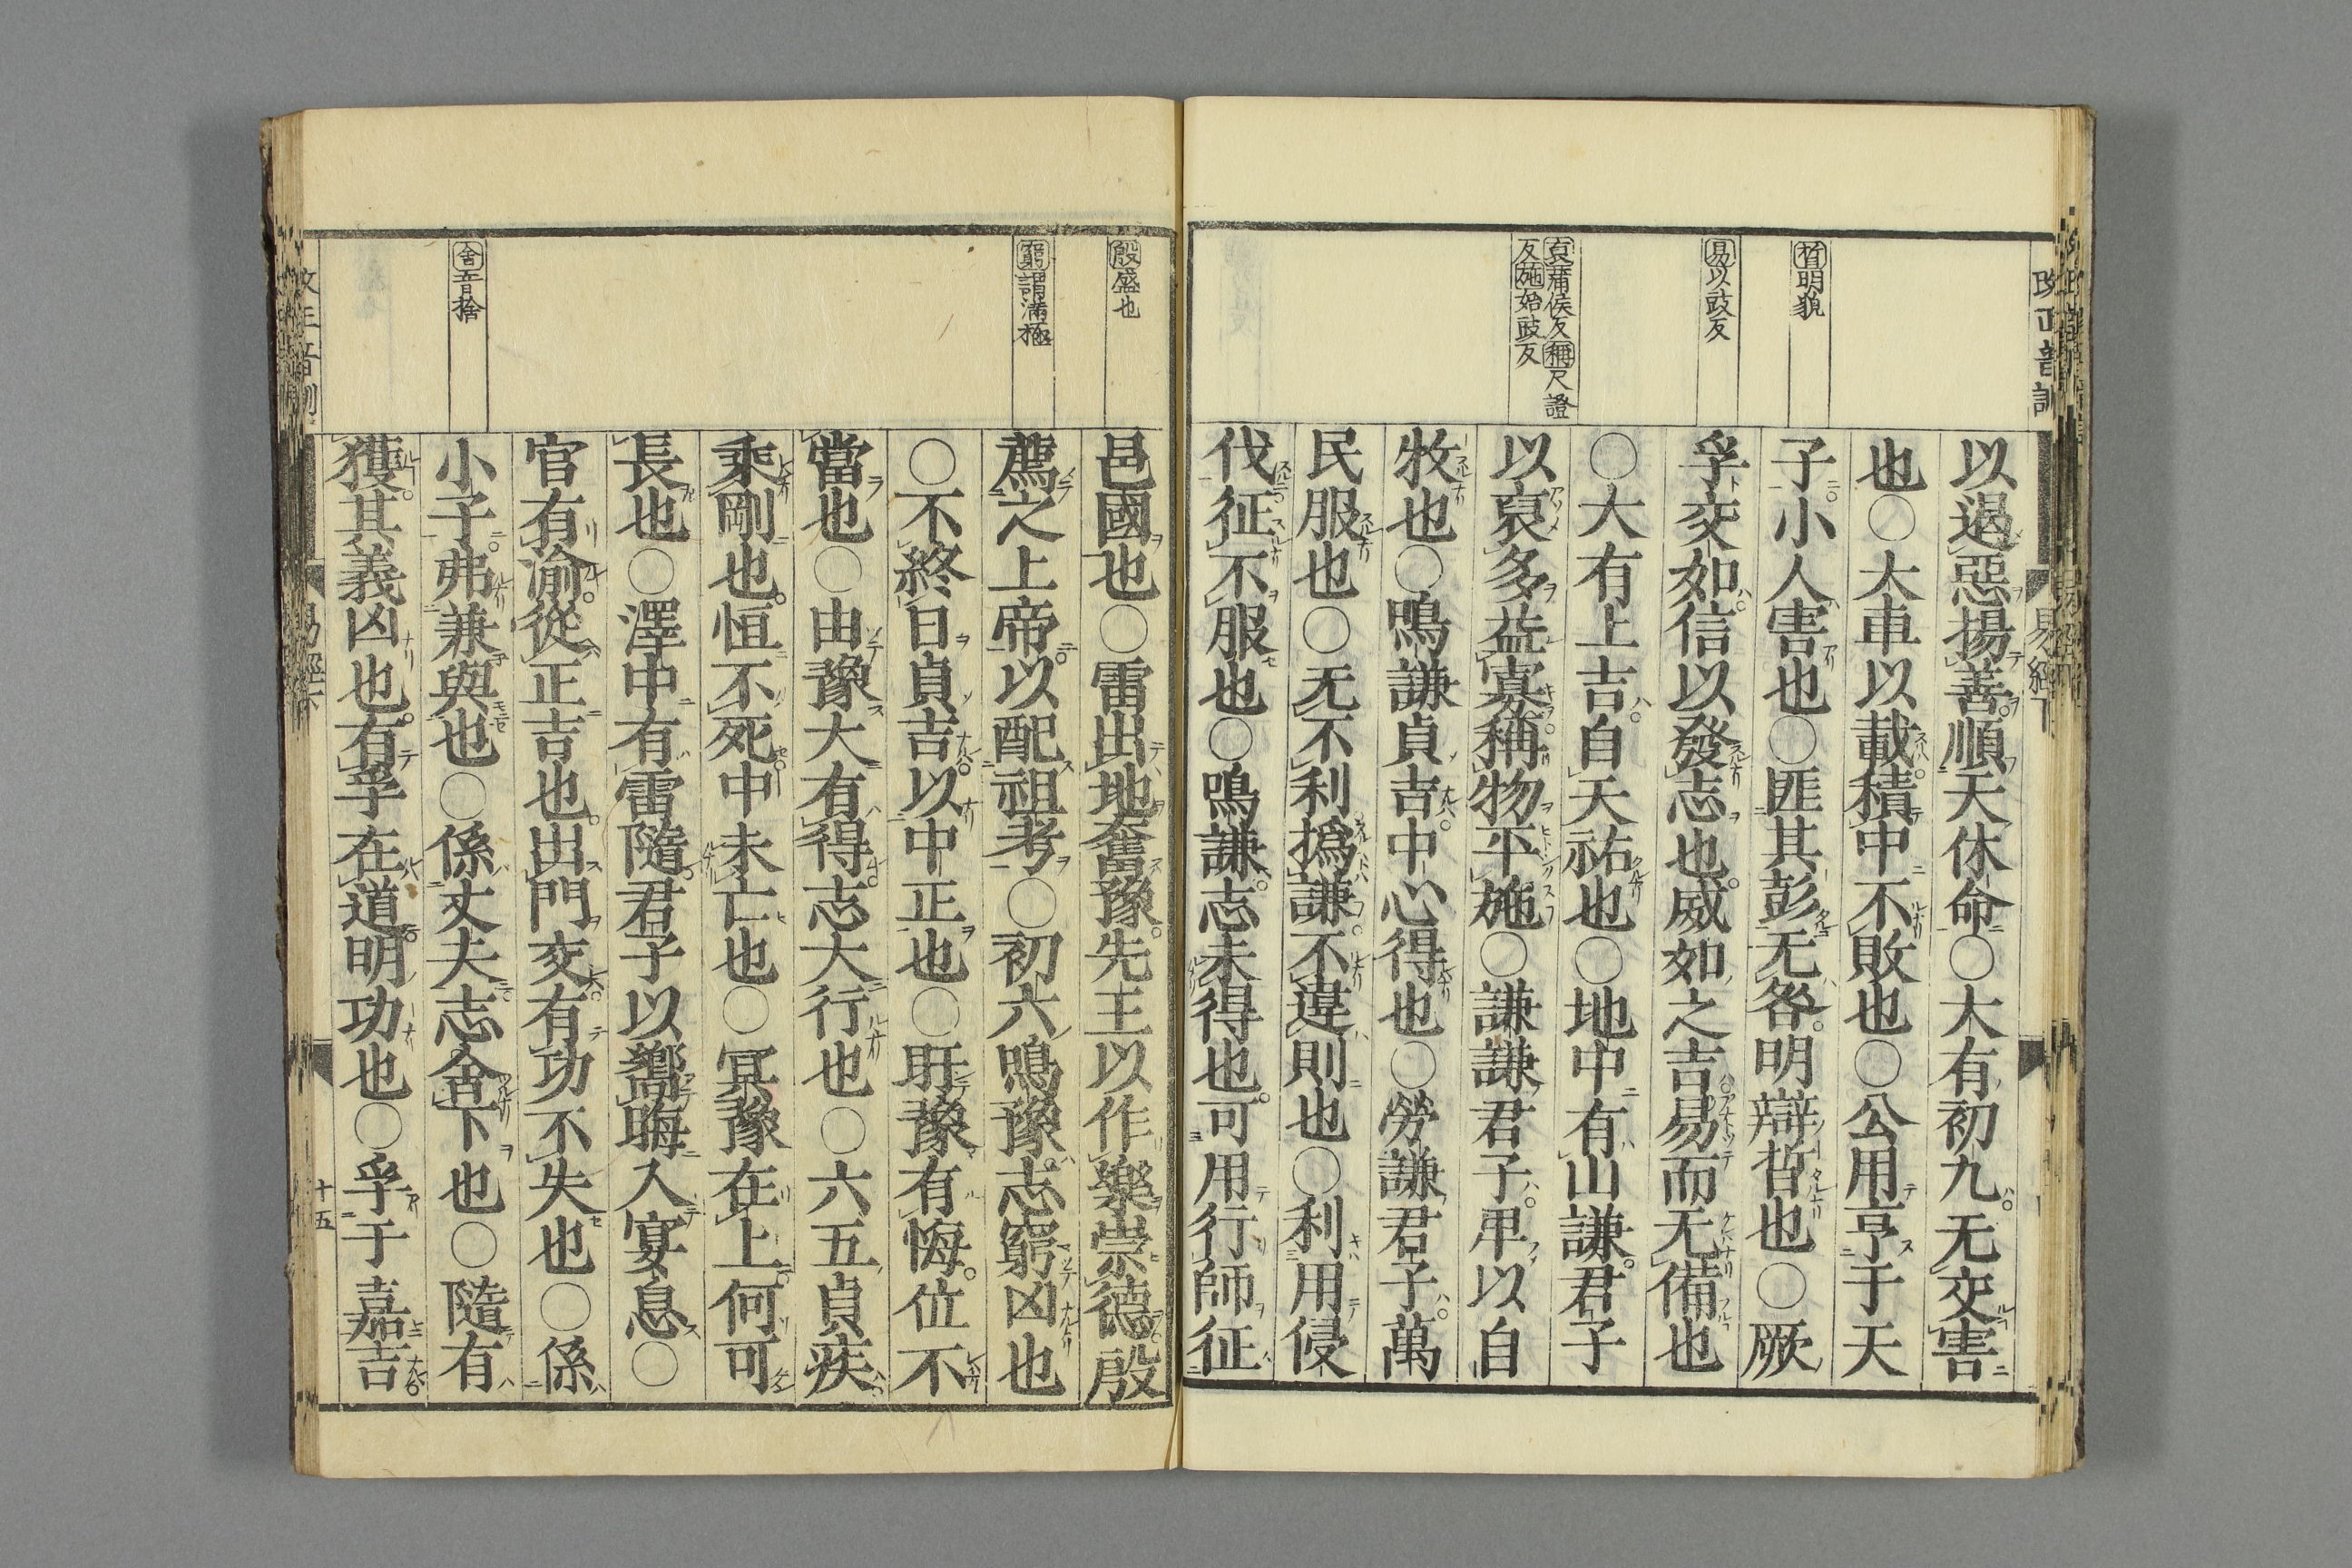 改正音訓
晢明貌
易以豉反
裒蒲侯反稱尺證
反施始豉反
易經下
以遏惡揚善順天休命〇大有初九无交害
也〇大車以載積中不敗也〇公用亨于天
子小人害也〇匪其彭无咎明辯晢也〇厥
孚交如信以發志也威如之吉易而无備也
〇大有上吉自天祐也〇地中有山謙君子
以裒多益寡稱物平施〇謙謙君子卑以自
牧也〇鳴謙貞吉中心得也〇勞謙君子萬
民服也〇无不利撝謙不違則也〇利用侵
伐征不服也〇鳴謙志未得也可用行師征
殷盛也
窮謂滿極
舍音捨
邑國也〇雷出地奮豫先王以作樂崇德殷
薦之上帝以配祖考〇初六鳴豫志窮凶也
〇不終日貞吉以中正也〇盱豫有悔位不
當也〇由豫大有得志大行也〇六五貞疾
乘剛也恒不死中未亡也〇冥豫在上何可
長也〇澤中有雷隨君子以嚮晦入宴息〇
官有渝從正吉也出門交有功不失也〇係
小子弗兼與也〇係丈夫志舍下也〇隨有
獲其義凶也有孚在道明功也〇孚于嘉吉
改正音訓
易經下
十五